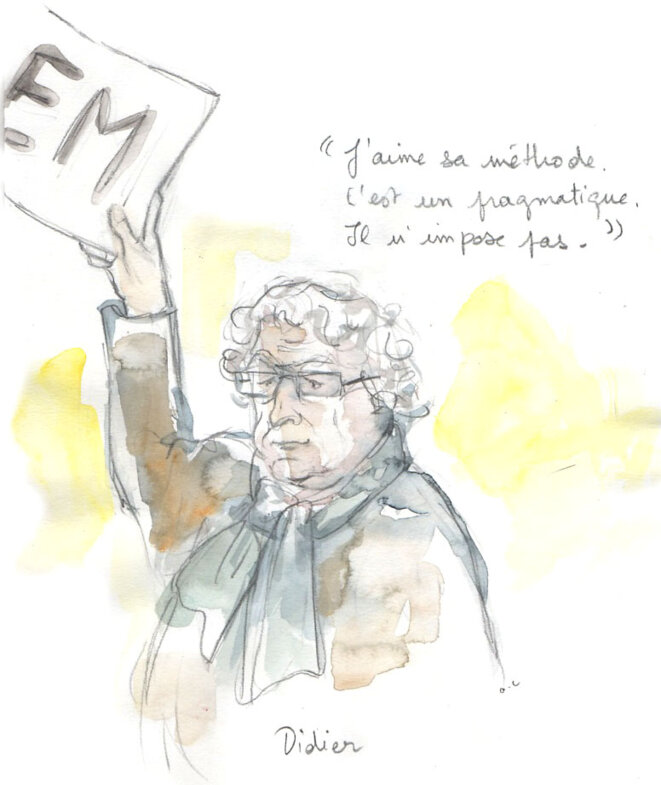 EM
“J'aime sa méthode.
C'est un pragmatique.
Il n'impose pas.”
Didier